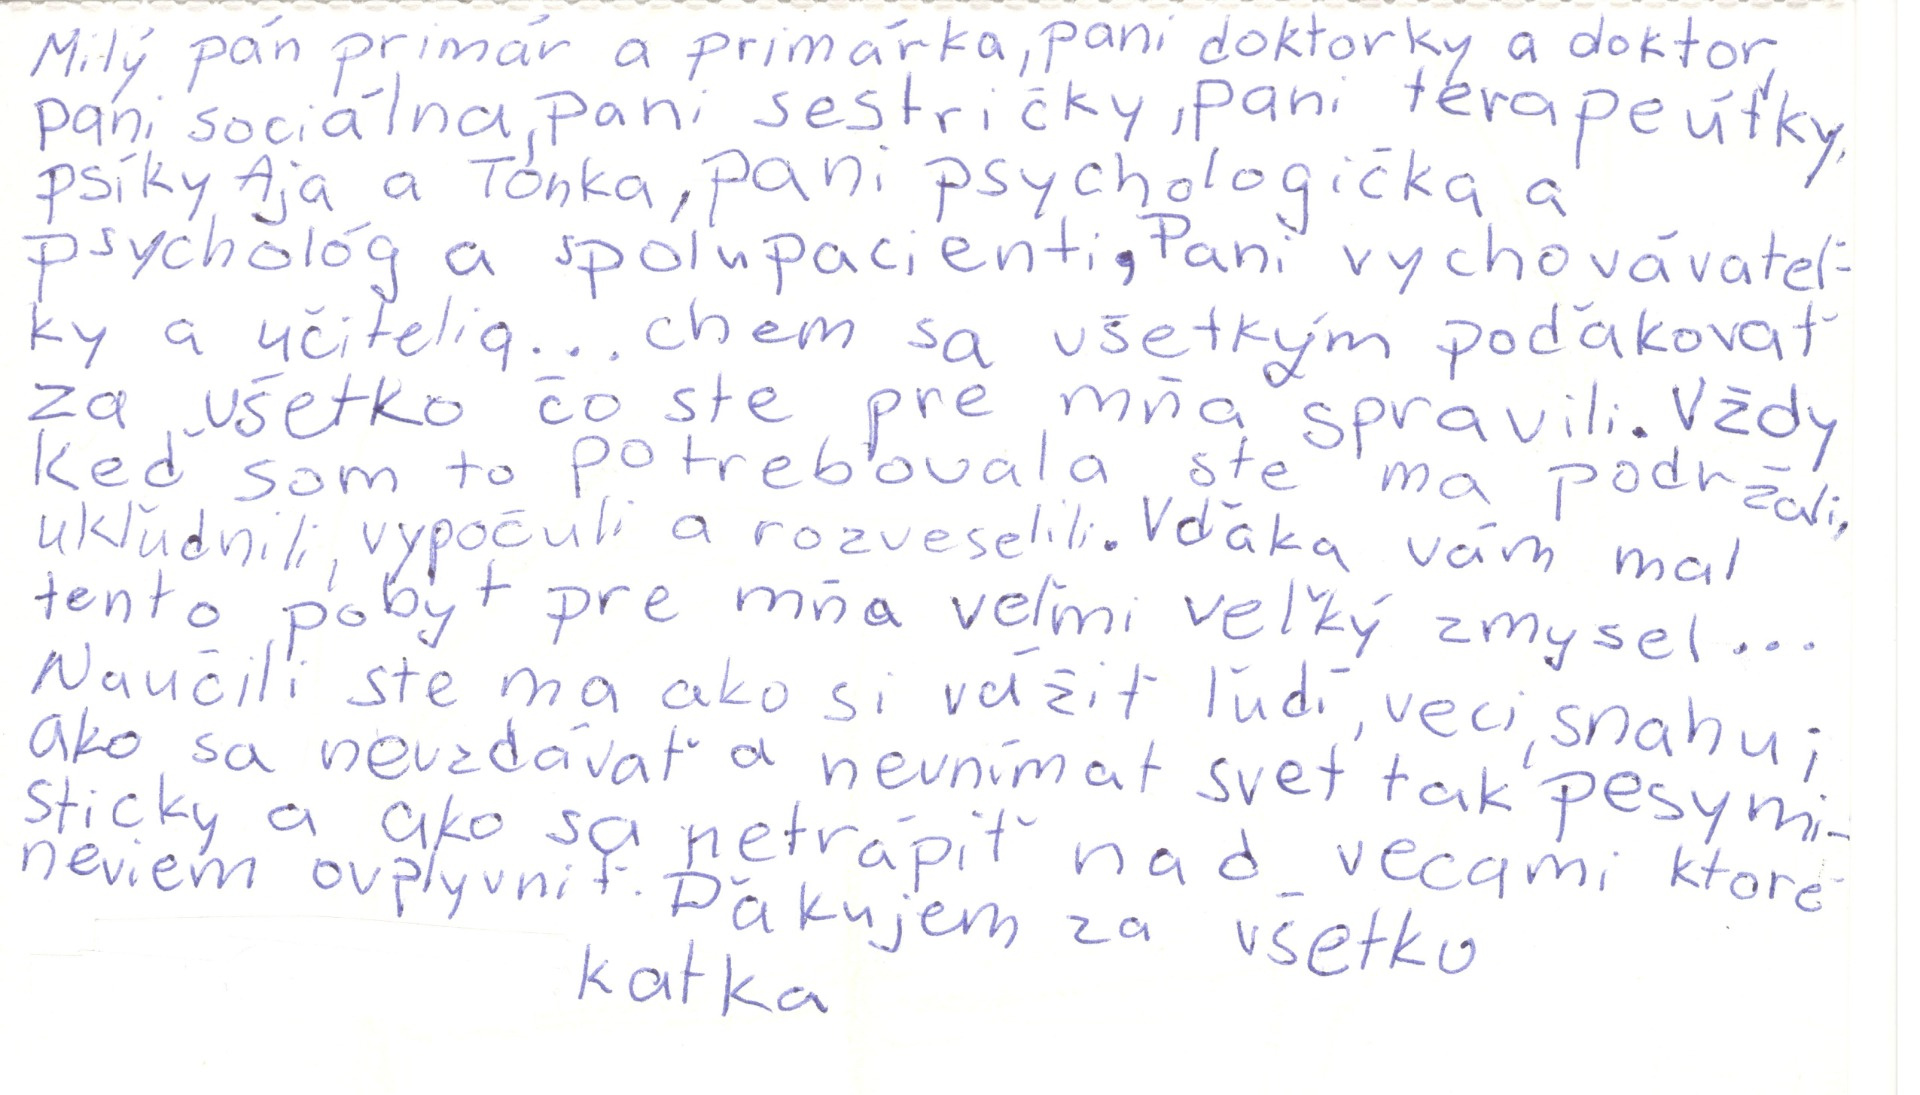 Milý pán primár a primárka, pani doktorky a doktor,
pani sociálna, pani sestričky, pani terapeútky,
psíky Aja a Tónka, pani psychologička a
psychológ a spolupacienti, Pani vychovávateľ-
ky a učitelia... chem sa všetkým poďakovať
za všetko čo ste pre mňa spravili. Vždy
keď som to potrebovala ste ma podržali,
ukľudnili, vypočuli a rozveselili. Vďaka vám mal
tento pobyt pre mňa veľmi veľký zmysel...
Naučili ste ma ako si vážiť ľudí, veci, snahu i
ako sa nevzdávať a nevnímat svet tak pesymi-
sticky a ako sa netrápiť nad vecami ktoré
neviem ovplyvniť. Ďakujem za všetko
Katka